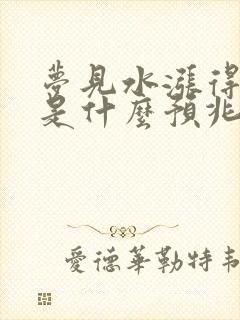 夢見水漲得
是什麼預兆
愛德華勒特韋